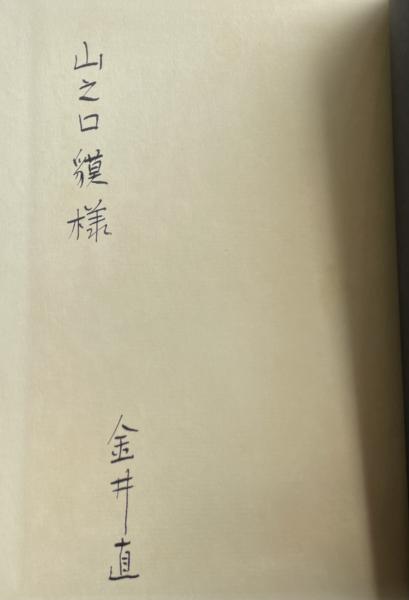 山之口貘様
金井直